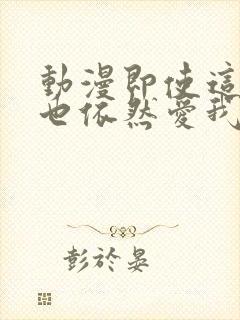 動漫即使這
也依然愛我
彭於晏